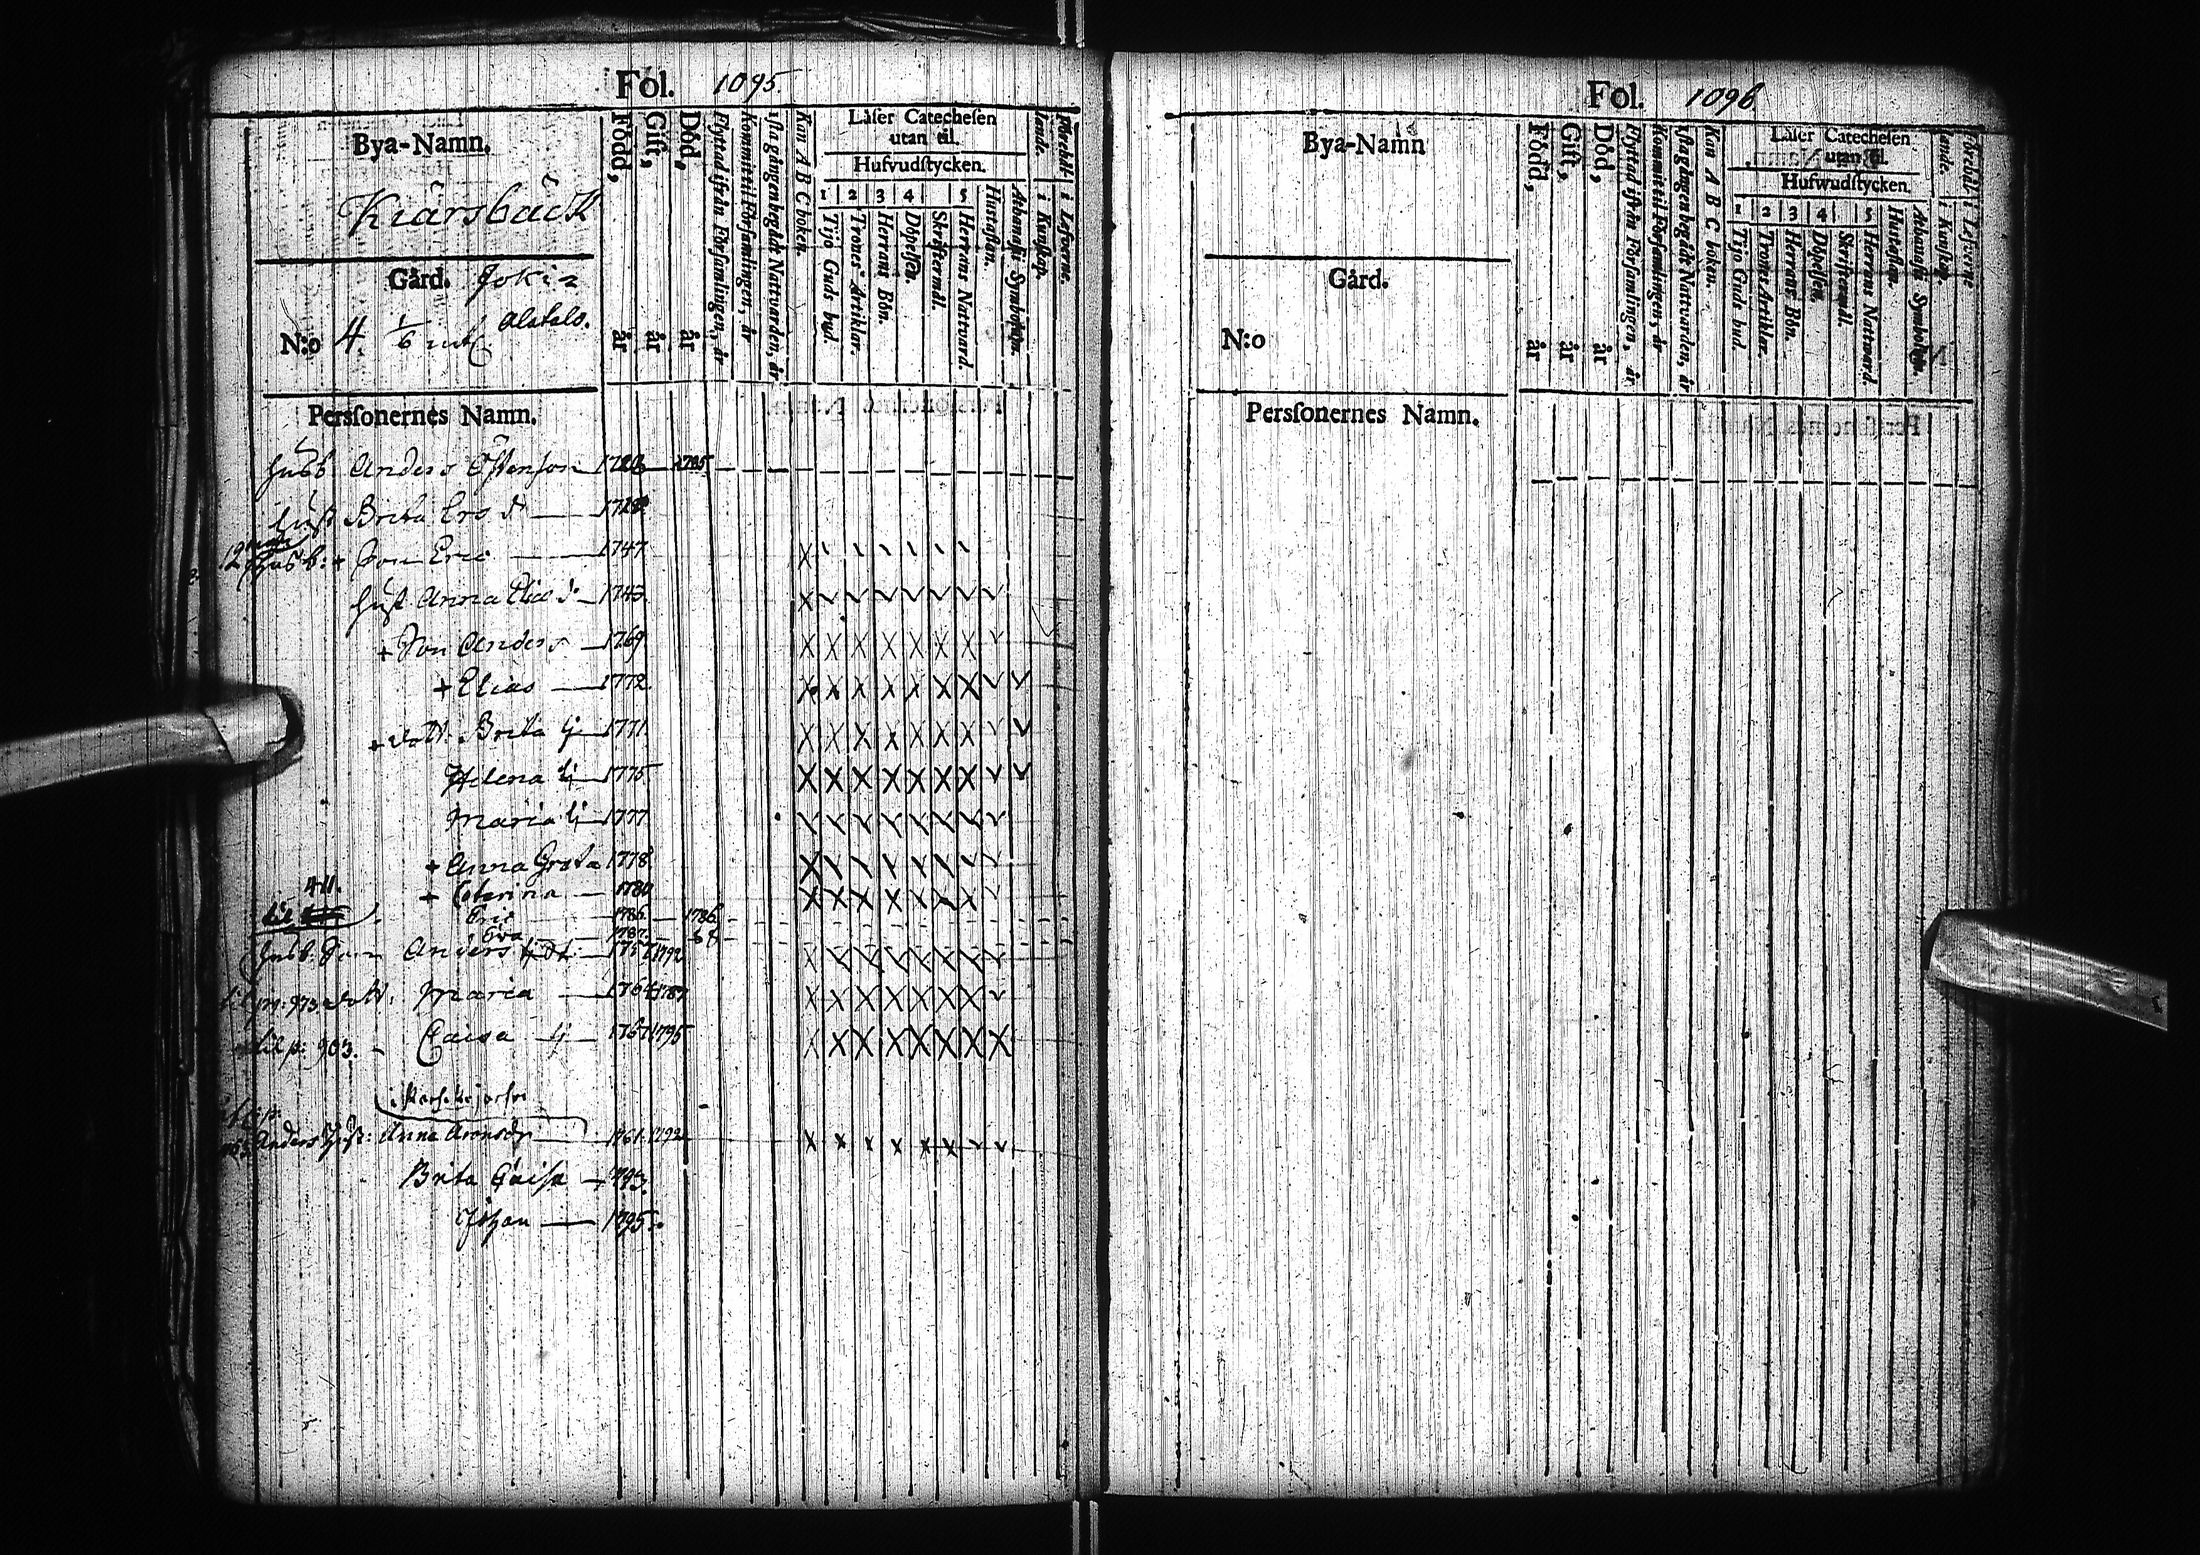 Fol. 1095.
Bya-Namn.
Kiärsbäck
Gård. Jokis
Alatalo.
N:o 4. 1/6 mtl
Persſonernes Namn.
Född, år
Gift, år
Död, år
Flyttad ifrån Församlingen, år
Kommit til Församlingen, år
1ſta gången begådt Nattvarden, år
Kan A B C boken.
Låſer Catecheſen
utan til.
Hufvudſtycken.
1 2 3 4 5
Tijo Guds bud.
Trones Artiklar.
Herrans Bön.
Döpelſen.
Skriftermål.
Herrans Nattvard.
Hustaflan.
Athanaſii Symbolum.
Förehållande.
i Kunſkap.
i Lefverne.
Husb Anders 1795
Hust Brita Ers d
Husb: + Son Eric 1747
Hust Anna Elias d. 1743.
+ Son Anders 1769
+ Elias 1772.
+ dott. Brita 1771
Helena 1775
Maria 1777
+ Anna Greta 1778
411. + Catarina 1780
til Eric 1786. 1786.
Eva 1787.
Husb. Son Anders 1757 1792
til p. 973 dott. Maria 1764 1787
til p: 903. Caisa 1767 1795
Anders Hust: Anna 1761. 1792
Brita Caisa 1793.
Johan 1795.
Fol. 1096
Bya-Namn
Gård.
N:o
Persſonernes Namn.
Född, år
Gift, år
Död, år
Flyttad ifrån Församlingen, år
Kommit til Församlingen, år
1ſta gången begådt Nattvarden, år
Kan A B C boken.
Låſer Catecheſen
utan til.
Hufwudſtycken.
1 2 3 4 5
Tijo Guds bud.
Trones Artiklar.
Herrans Bön.
Döpelſen.
Skriftermål.
Herrans Nattvard.
Hustaflan.
Athanaſii Symbolum.
Förehållande.
i Kunſkap.
i Lefverne